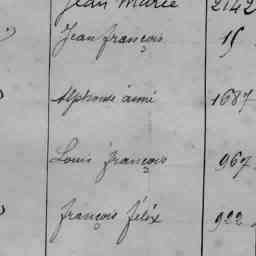 Jean Marie 2142
Jean françois 15
Alphonse aimé 1687
Louis françois 967
françois félix 922